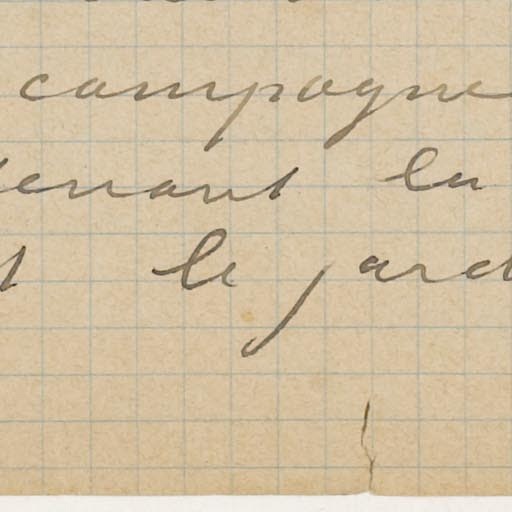 campagne
tenant la
t le jard